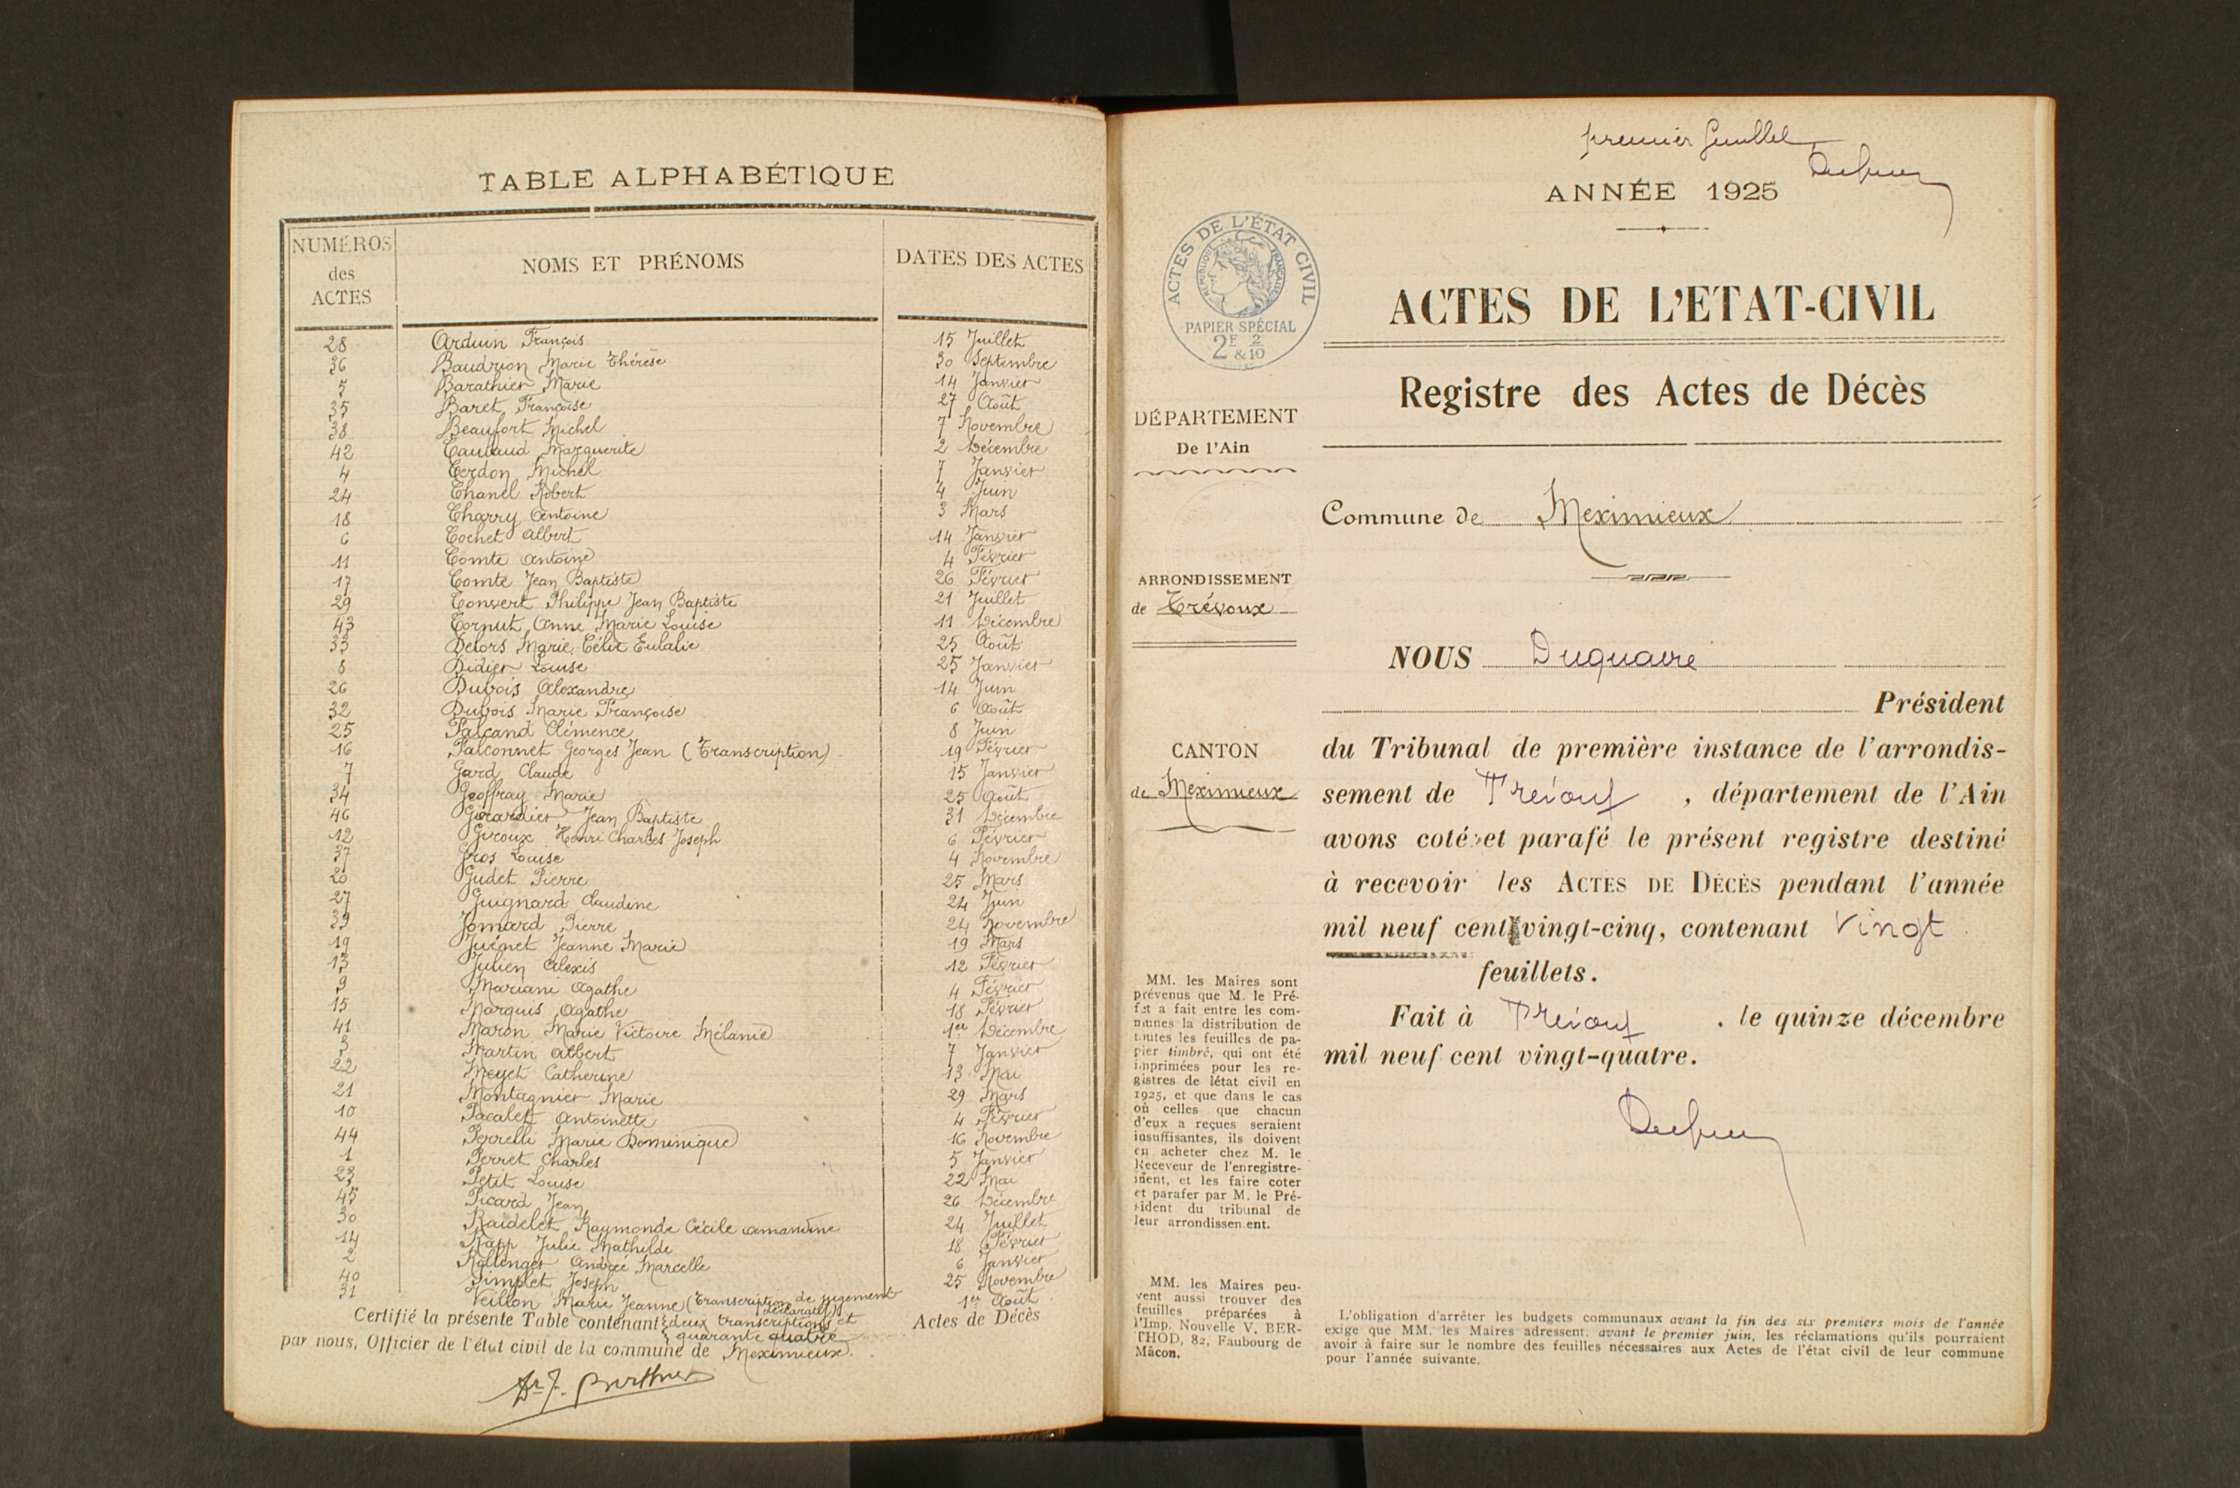 TABLE ALPHABÉTIQUE
NUMÉROS des ACTES NOMS ET PRÉNOMS DATES DES ACTES
28 Arduin François 15 Juillet
36 Baudrion Marie Thérèse 30 Septembre
5 Barathier Marie 14 Janvier
35 Baret Françoise 27 Août
38 Beaufort Michel 7 Novembre
42 Marguerite 2 Décembre
4 Cerdon Michel 7 Janvier
24 Chanel Robert 4 Juin
18 Charry Antoine 3 Mars
6 Cochet Albert 14 Janvier
11 Comte Antoine 4 Février
17 Comte Jean Baptiste 26 Février
29 Convert Philippe Jean Baptiste 21 Juillet
43 Cornut Anne Marie Louise 11 Décembre
33 Delors Marie Célie Eulalie 25 Août
8 Didier Louise 25 Janvier
26 Dubois Alexandre 14 Juin
32 Dubois Marie Françoise 6 Août
25 Falcand Clémence 8 Juin
16 Falconnet Georges Jean (Transcription) 19 Février
7 Gard Claude 15 Janvier
34 Geoffray Marie 25 Août
46 Girardier Jean Baptiste 31 Décembre
12 Giroux Henri Charles Joseph 6 Février
37 Gros Louise 4 Novembre
20 Gudet Pierre 25 Mars
27 Guignard Claudine 24 Juin
39 Jomard Pierre 24 Novembre
19 Juénet Jeanne Marie 19 Mars
13 Julien Alexis 12 Février
9 Mariani Agathe 4 Février
15 Marquis Agathe 18 Février
41 Maron Marie Victoire Mélanie 1er Décembre
3 Martin Albert 7 Janvier
22 Meyet Catherine 13 Mai
21 Montagnier Marie 29 Mars
10 Pacalet Antoinette 4 Février
44 Perrelli Marie Dominique 16 Novembre
1 Perret Charles 5 Janvier
23 Petit Louise 22 Mai
45 Picard Jean 26 Décembre
30 Raidelet Raymonde Cécile Amandine 24 Juillet
14 Rapp Julie Mathilde 18 Février
2 Rollenger Andrée Marcelle 6 Janvier
40 Simplet Joseph 25 Novembre
31 Veillon Marie Jeanne (Transcription de jugement déclaratif) 1er Août
Certifié la présente Table contenant deux transcriptions et quarante quatre Actes de Décès
par nous, Officier de l'état civil de la commune de Meximieux.
Dr J. Berthier
premier feuillet
ANNÉE 1925
ACTES DE L'ÉTAT CIVIL
RÉPUBLIQUE FRANÇAISE
PAPIER SPÉCIAL
2F 2/10
&
ACTES DE L'ETAT-CIVIL
Registre des Actes de Décès
DÉPARTEMENT
De l'Ain
Commune de Meximieux
ARRONDISSEMENT
de Trévoux
CANTON
de Meximieux
NOUS Duquaire
Président
du Tribunal de première instance de l'arrondis-
sement de Trévoux, département de l'Ain
avons coté et parafé le présent registre destiné
à recevoir les ACTES DE DÉCÈS pendant l'année
mil neuf cent vingt-cinq, contenant Vingt
feuillets.
Fait à Trévoux, le quinze décembre
mil neuf cent vingt-quatre.
MM. les Maires sont
prévenus que M. le Pré-
fet a fait entre les com-
munes la distribution de
toutes les feuilles de pa-
pier timbré, qui ont été
imprimées pour les re-
gistres de létat civil en
1925, et que dans le cas
où celles que chacun
d'eux a reçues seraient
insuffisantes, ils doivent
en acheter chez M. le
Receveur de l'enregistre-
ment, et les faire coter
et parafer par M. le Pré-
sident du tribunal de
leur arrondissement.
MM. les Maires peu-
vent aussi trouver des
feuilles préparées à
l'Imp. Nouvelle V. BER-
THOD, 82, Faubourg de
Mâcon.
L'obligation d'arrêter les budgets communaux avant la fin des six premiers mois de l'année
exige que MM. les Maires adressent, avant le premier juin, les réclamations qu'ils pourraient
avoir à faire sur le nombre des feuilles nécessaires aux Actes de l'état civil de leur commune
pour l'année suivante.